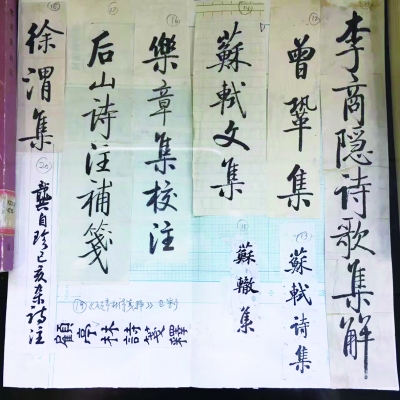 李商隐诗歌集解
曾鞏集
蘇軾詩集
蘇軾文集
蘇轍集
樂章集校注
后山诗注補箋
顧亭林詩箋釋
徐渭集
龔自珍己亥杂诗注